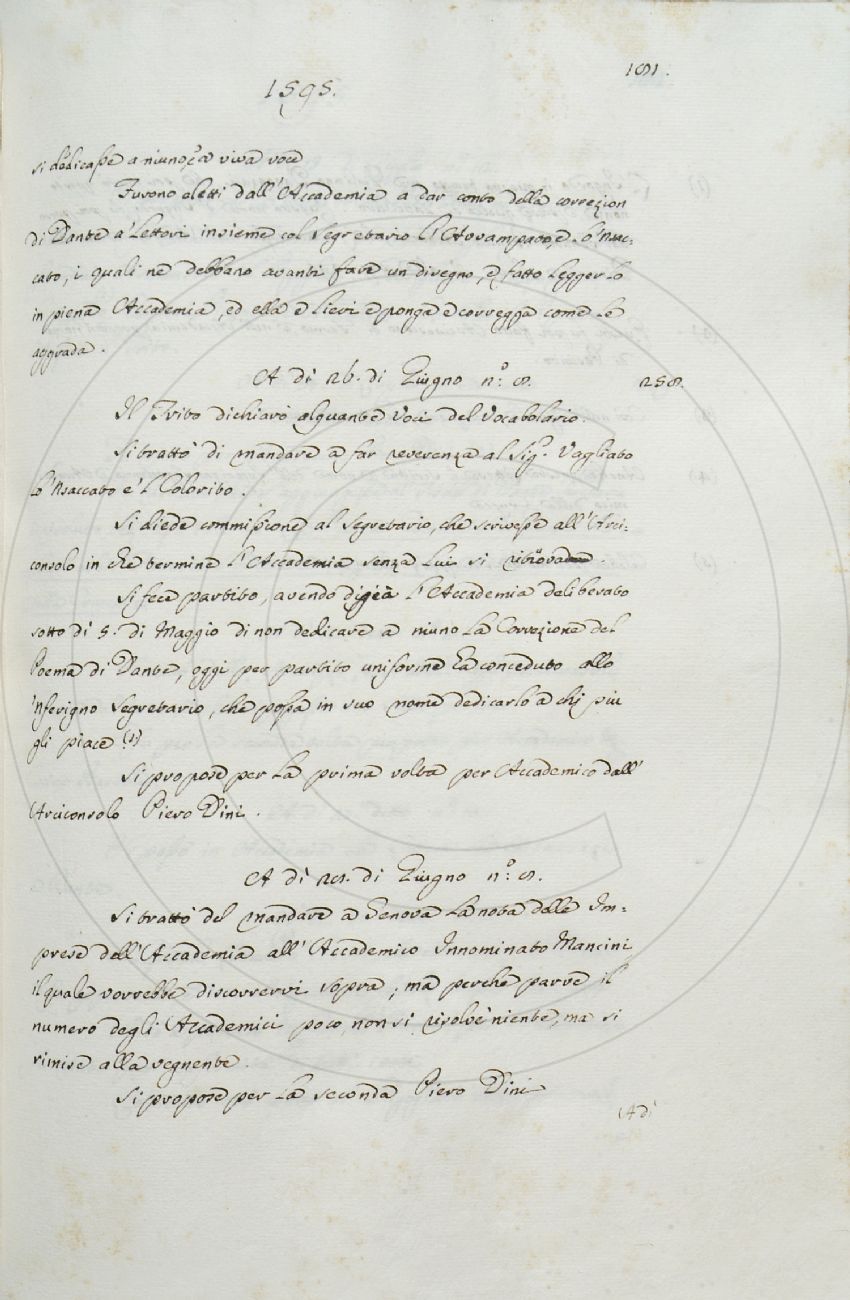 181.
1595.
si dedicasse a niuno, è a viva voce
Furono eletti dall'Accademia a dar conto della correzion
di Dante a' Lettori insieme col Segretario l'Avvampato, e lo 'Nsac-
cato, i quali ne debbano avanti fare un disegno, e fatto leggerlo
in piena Accademia, ed ella e lievi e ponga e corregga come le
aggrada.
A dì 26. di Giugno n.° 8.
258.
Il Trito dichiarò alquante Voci del Vocabolario.
Si trattò di mandare a far reverenza al Sig.r Vagliato
lo 'Nsaccato e 'l Colorito.
Si diede commissione al Segretario, che scrivesse all'Arci-
consolo in che termine l'Accademia senza lui si ritrova.
Si fece partito, avendo digià l'Accademia deliberato
sotto dì 5. di Maggio di non dedicare a niuno la Correzione del
Poema di Dante, oggi per partito uniforme ha conceduto allo
'nferigno Segretario, che possa in suo nome dedicarlo a chi più
gli piace (1)
Si propose per la prima volta per Accademico dall'
Arciconsolo Piero Dini.
A dì 28. di Giugno n.° 8.
Si trattò del mandare a Genova la nota delle Im-
prese dell'Accademia all'Accademico Innominato Mancini
il quale vorrebbe discorrervi sopra; ma perchè parve il
numero degli Accademici poco, non si risolvè niente, ma si
rimise alla vegnente.
Si propose per la seconda Piero Dini
A dì